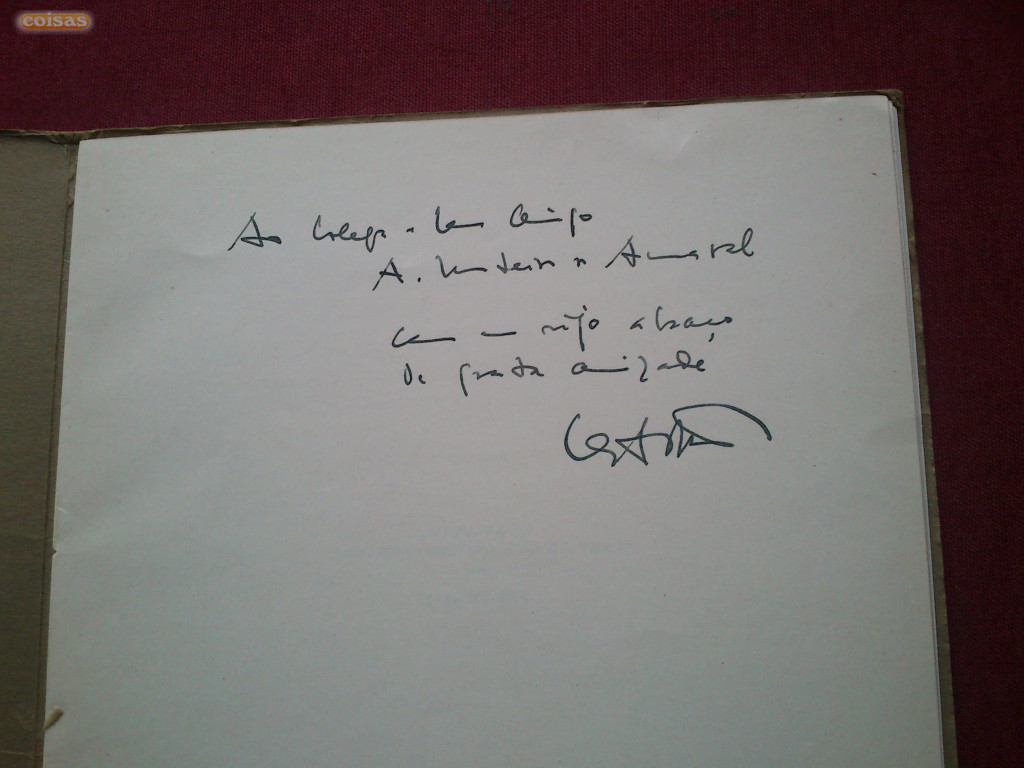 coisas
Ao Colega e bom Amigo
A. Monteiro do Amaral
com um rijo abraço
de grata amizade